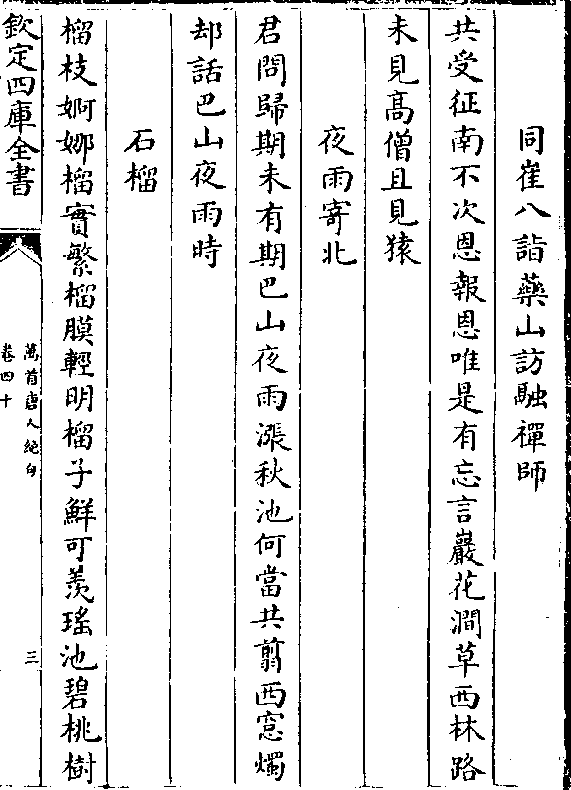 同崔八詣藥山訪融禪師
共受征南不次恩報恩唯是有忘言巖花澗草西林路
未見髙僧且見猿
夜雨寄北
君問歸期未有期巴山夜雨漲秋池何當共翦西窓燭
却話巴山夜雨時
石榴
榴枝婀娜榴實繁榴膜輕明榴子鮮可羨瑤池碧桃樹
欽定四庫全書
萬首唐人絶句
卷四十
三